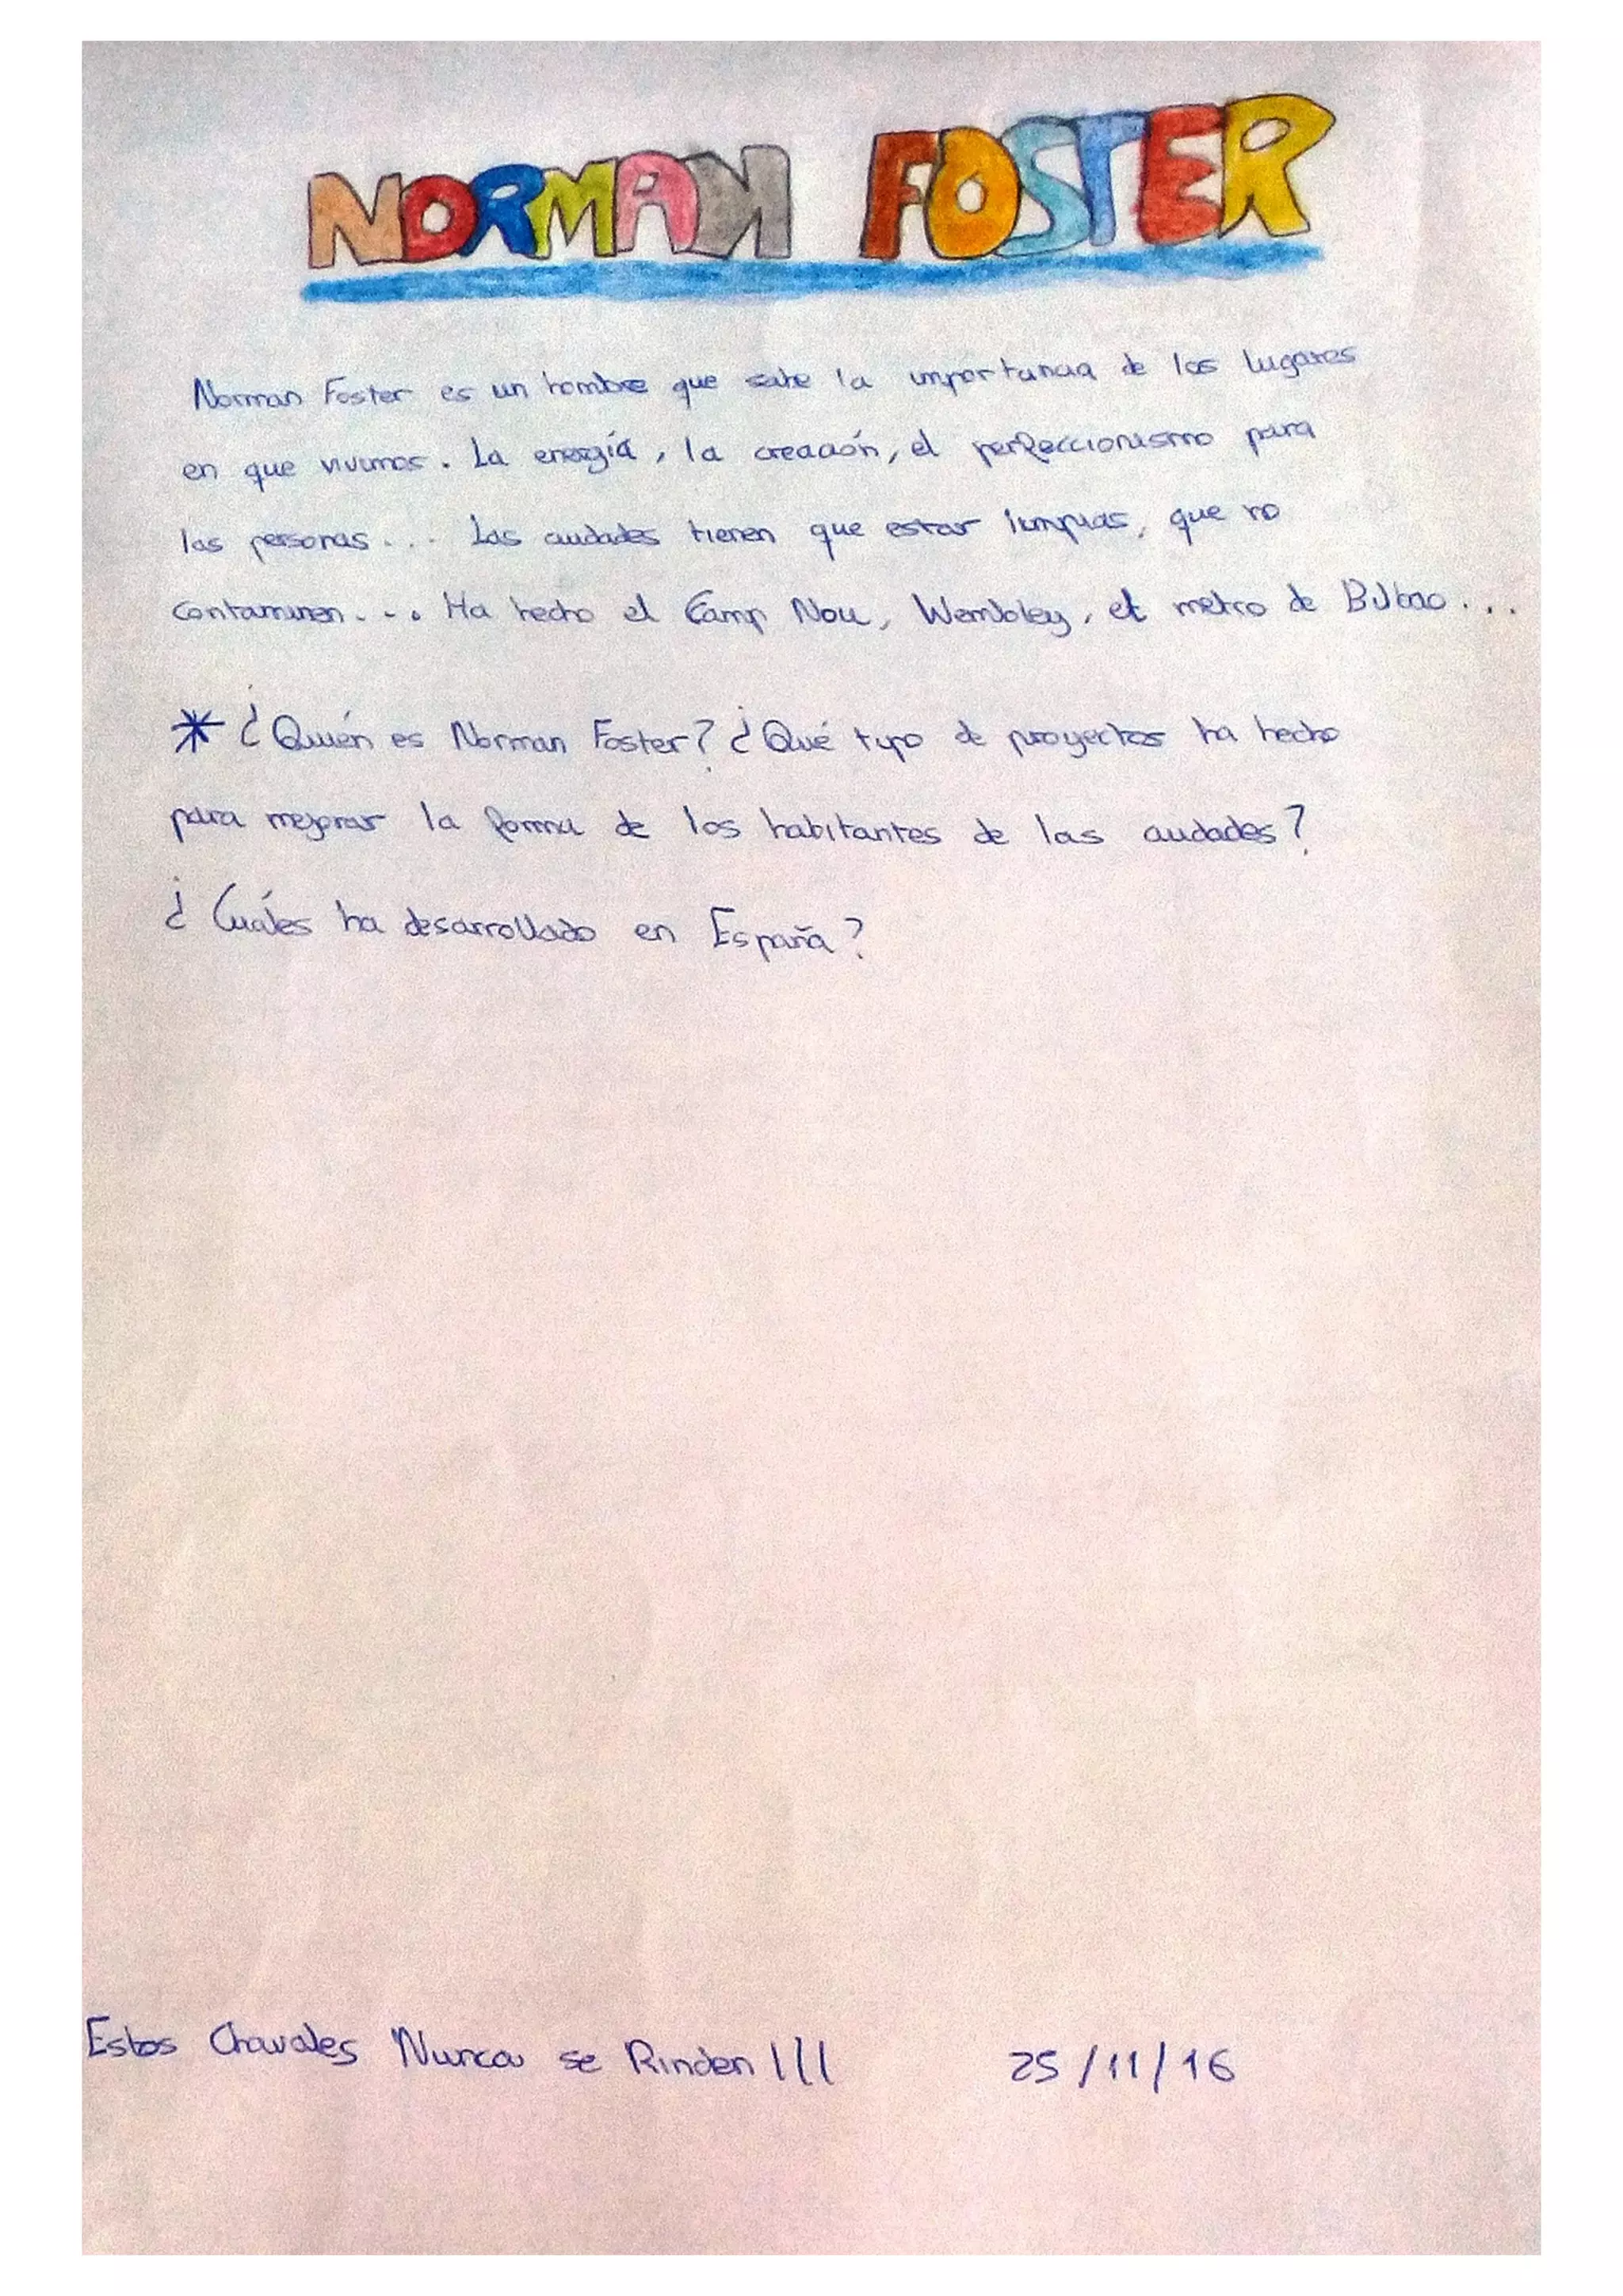 NORMAN FOSTER
Norman Foster es un hombre que sabe la importancia de los lugares
en que vivimos. La energía, la creación, el perfeccionismo para
las personas... Las ciudades tienen que estar limpias, que no
contaminen... Ha hecho el Camp Nou, Wembley, el metro de Bilbao...
* ¿Quién es Norman Foster? ¿Qué tipo de proyectos ha hecho
para mejorar la forma de los habitantes de las ciudades?
¿Cuáles ha desarrollado en España?
Estos Chavales Nunca se Rinden!!! 25/11/16